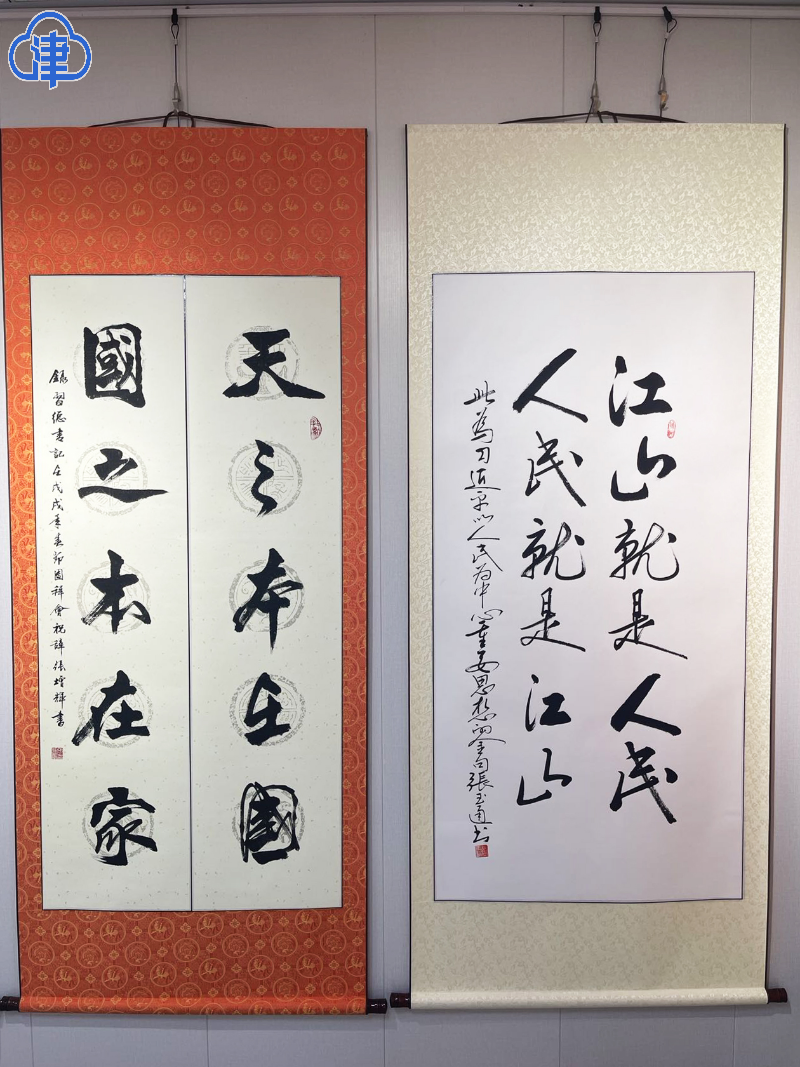 津
天之本在國
國之本在家
錄習總書記在戊戌年春節團拜會祝辭 張增輝書
江山就是人民
人民就是江山
此為习近平以人民為中心重要思想的金句張玉通书